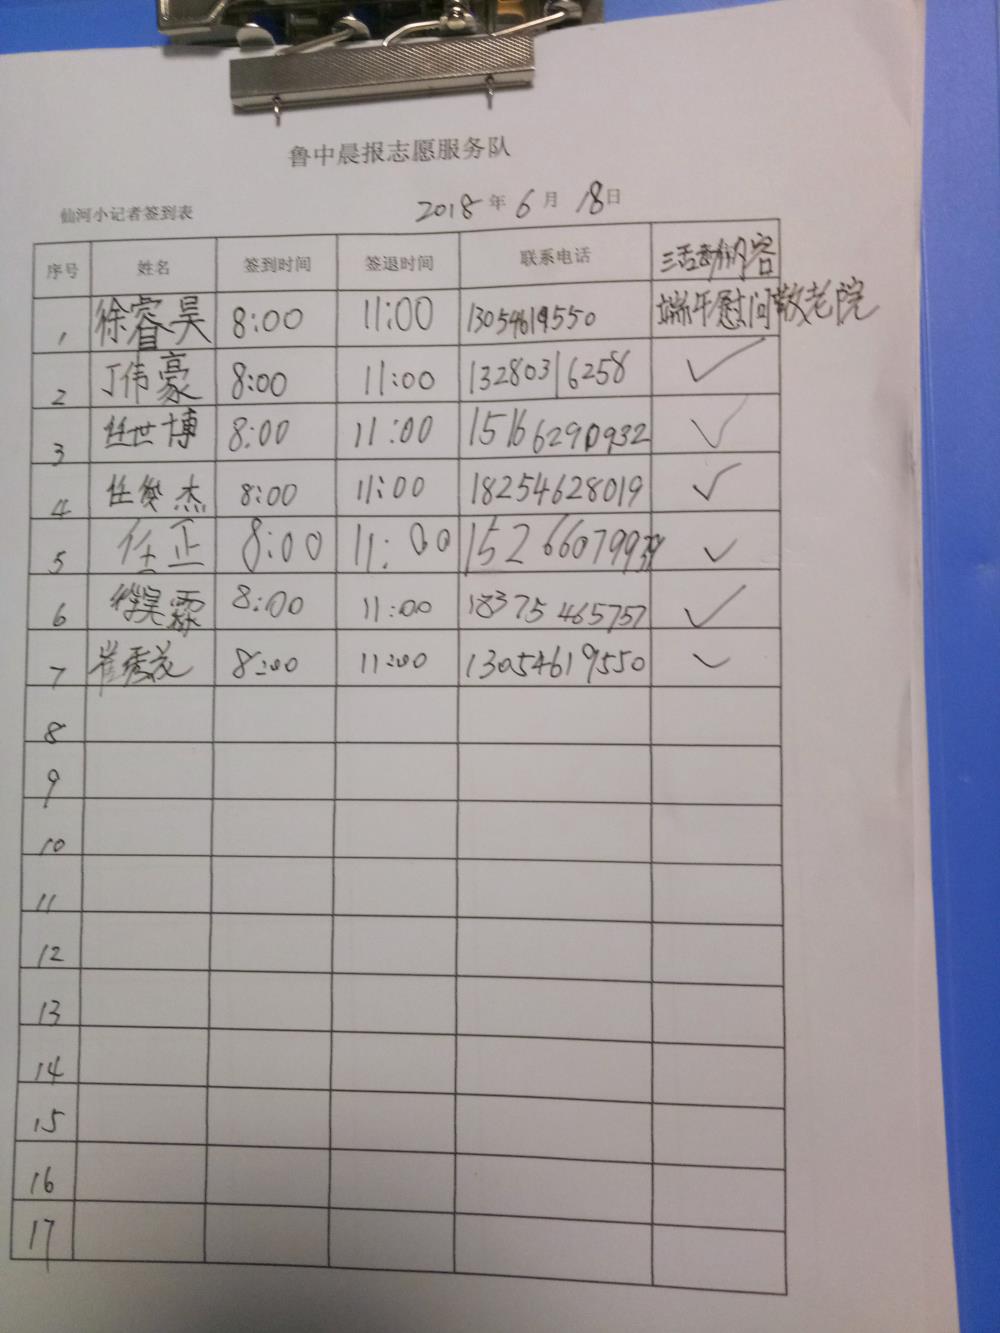 鲁中晨报志愿服务队
仙河小记者签到表 2018年6月18日
序号 姓名 签到时间 签退时间 联系电话 活动内容
1 徐睿昊 8:00 11:00 13054619550 端午慰问敬老院
2 丁伟豪 8:00 11:00 13280316258 ✓
3 任世博 8:00 11:00 15166290932 ✓
4 任俊杰 8:00 11:00 18254628019 ✓
5 任正 8:00 11:00 ✓
6 徐昊霖 8:00 11:00 18375465757 ✓
7 崔秀花 8:00 11:00 13054619550 ✓
8
9
10
11
12
13
14
15
16
17